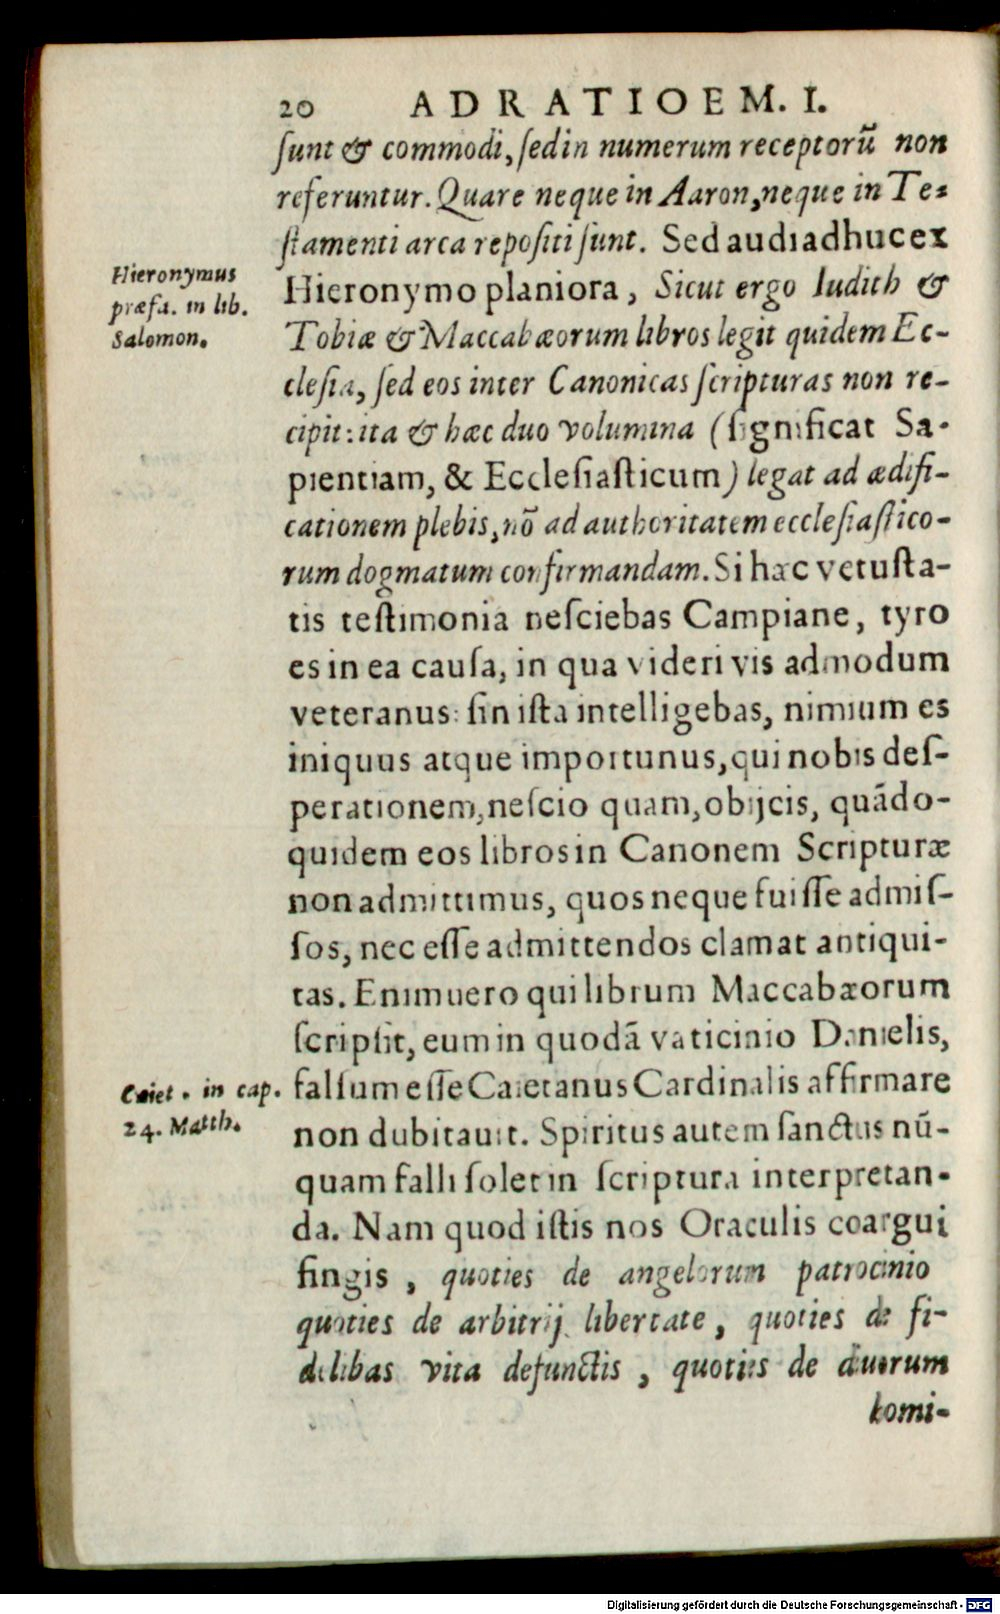 20 AD RATIOEM. I.
ſunt & commodi, ſed in numerum receptorũ non
referuntur. Quare neque in Aaron, neque in Te-
ſtamenti arca repoſiti ſunt. Sed audi adhuc ex
Hieronymus
præfa. in lib.
Salomon.
Hieronymo planiora, Sicut ergo Iudith &
Tobiæ & Maccabæorum libros legit quidem Ec-
cleſia, ſed eos inter Canonicas ſcripturas non re-
cipit: ita & hæc duo volumina (ſignificat Sa-
pientiam, & Eccleſiaſticum) legat ad ædifi-
cationem plebis, nõ ad authoritatem eccleſiaſtico-
rum dogmatum confirmandam. Si hæc vetuſta-
tis teſtimonia neſciebas Campiane, tyro
es in ea cauſa, in qua videri vis admodum
veteranus: ſin iſta intelligebas, nimium es
iniquus atque importunus, qui nobis deſ-
perationem, neſcio quam, obijcis, quãdo-
quidem eos libros in Canonem Scripturæ
non admittimus, quos neque fuiſſe admiſ-
ſos, nec eſſe admittendos clamat antiqui-
tas. Enimuero qui librum Maccabæorum
ſcripſit, eum in quodã vaticinio Danielis,
Caiet. in cap.
24. Matth.
falſum eſſe Caietanus Cardinalis affirmare
non dubitauit. Spiritus autem ſanctus nũ-
quam falli ſolet in ſcriptura interpretan-
da. Nam quod iſtis nos Oraculis coargui
fingis, quoties de angelorum patrocinio
quoties de arbitrij libertate, quoties de fi-
delibas vita defunctis, quoties de diuorum
homi-
Digitalisierung gefördert durch die Deutsche Forschungsgemeinschaft - DFG